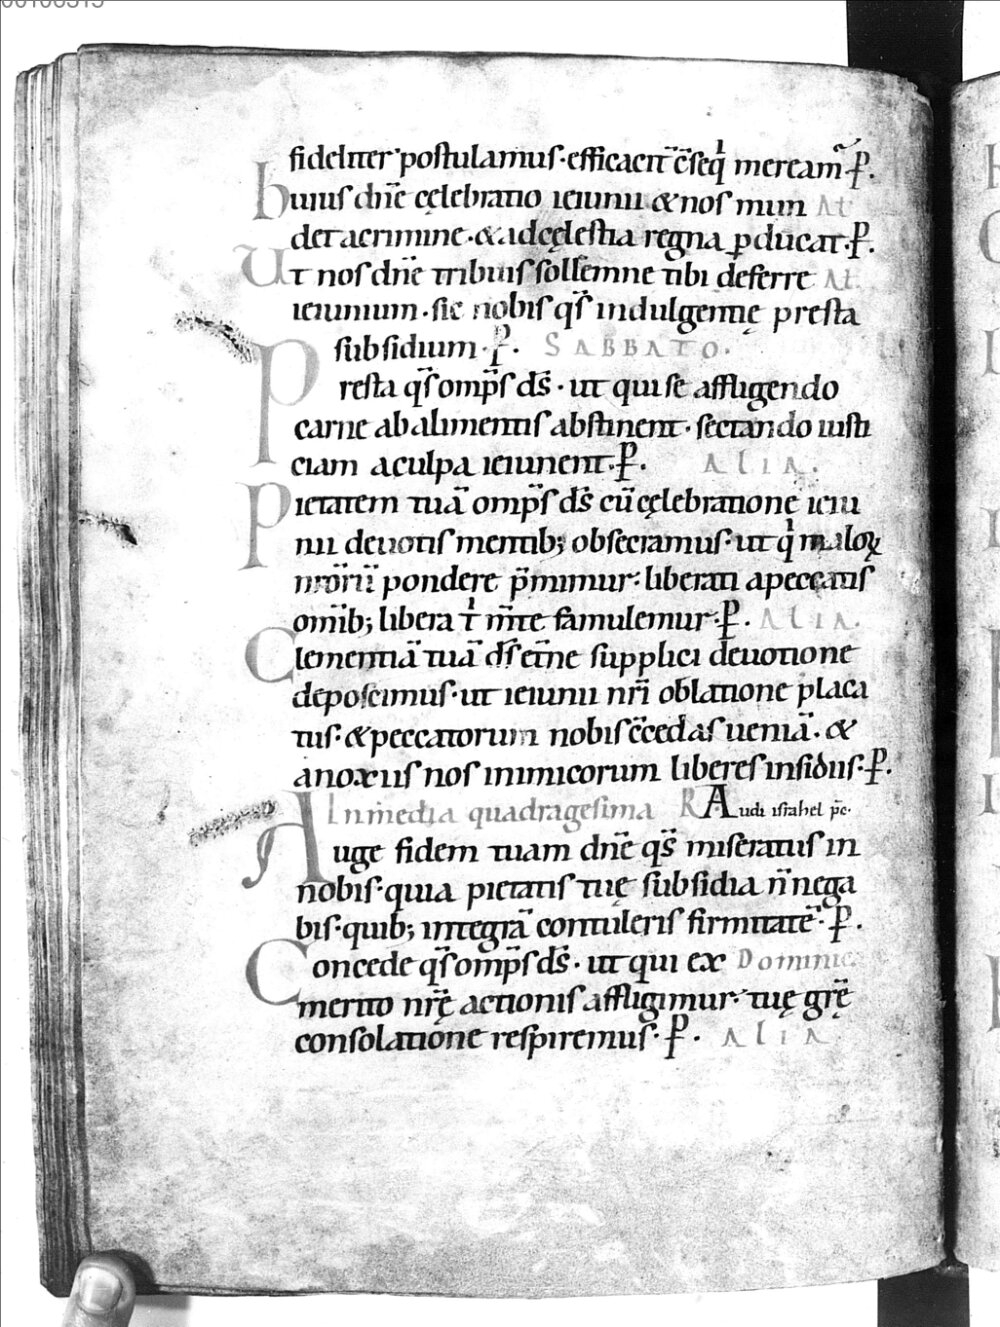 fideliter postulamus·efficacit̄ c̄seq̇ mereamˉ·P̄.
Huius dn̄e cęlebratio ieiunii & nos mun At
det a crimine·& ad cęlestia regna p̱ducat·P̄.
Ut nos dn̄e tribuis sollēmne tibi deferre At
ieiunium·sic nobis q̄s indulgentię presta
subsidium·P̄. SABBATO.
Presta q̄s omp̄s ds̄·ut qui se affligendo
carne ab alimentis abstinent·sectando iusti
ciam a culpa ieiunent·P̄. ALIA.
Pietatem tuā omp̄s ds̄ cū cęlebratione ieiu
nii deuotis mentib; obsecramus·ut q̇ maloꝝ
nr̄orū pondere p̄mimur·liberati a peccatis
om̄ib; libera t̄ m̄te famulemur·P̄. ALIA.
Clementiā tuā ds̄ et̄ne supplici deuotione
deposcimus·ut ieiunii nr̄i oblatione placa
tus·& peccatorum nobis c̄cedas ueniā·&
a noxiis nos inimicorum liberes insidiis·P̄.
In media quadragesima R Audi israhel p̄c·
Auge fidem tuam dn̄e q̄s miseratus in
nobis·quia pietatis tuę subsidia n̄ nega
bis·quib; integrā contuleris firmitatē·P̄.
Concede q̄s omp̄s ds̄·ut qui ex Dominic
merito nr̄ę actionis affligimur·tuę gr̄ę
consolatione respiremus·P̄. ALIA